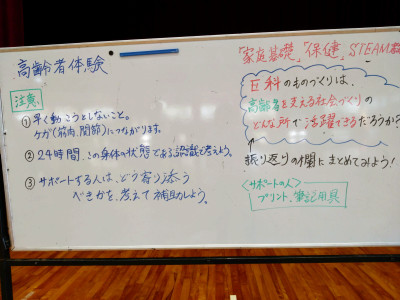 高齢者体験
注意
① 早く動こうとしないこと。
ケガ(筋肉、関節)につながります。
② 24時間、この身体の状態である認識で考えよう。
③ サポートする人は、どう寄り添う
べきかを、考えて補助しよう。
「家庭基礎」「保健」STEAM
巨科のものづくりは、
高齢者を支える社会づくりの
どんな所で活躍できるだろうか?
振り返りの欄にまとめてみよう!
<サポートの人>
プリント、筆記用具